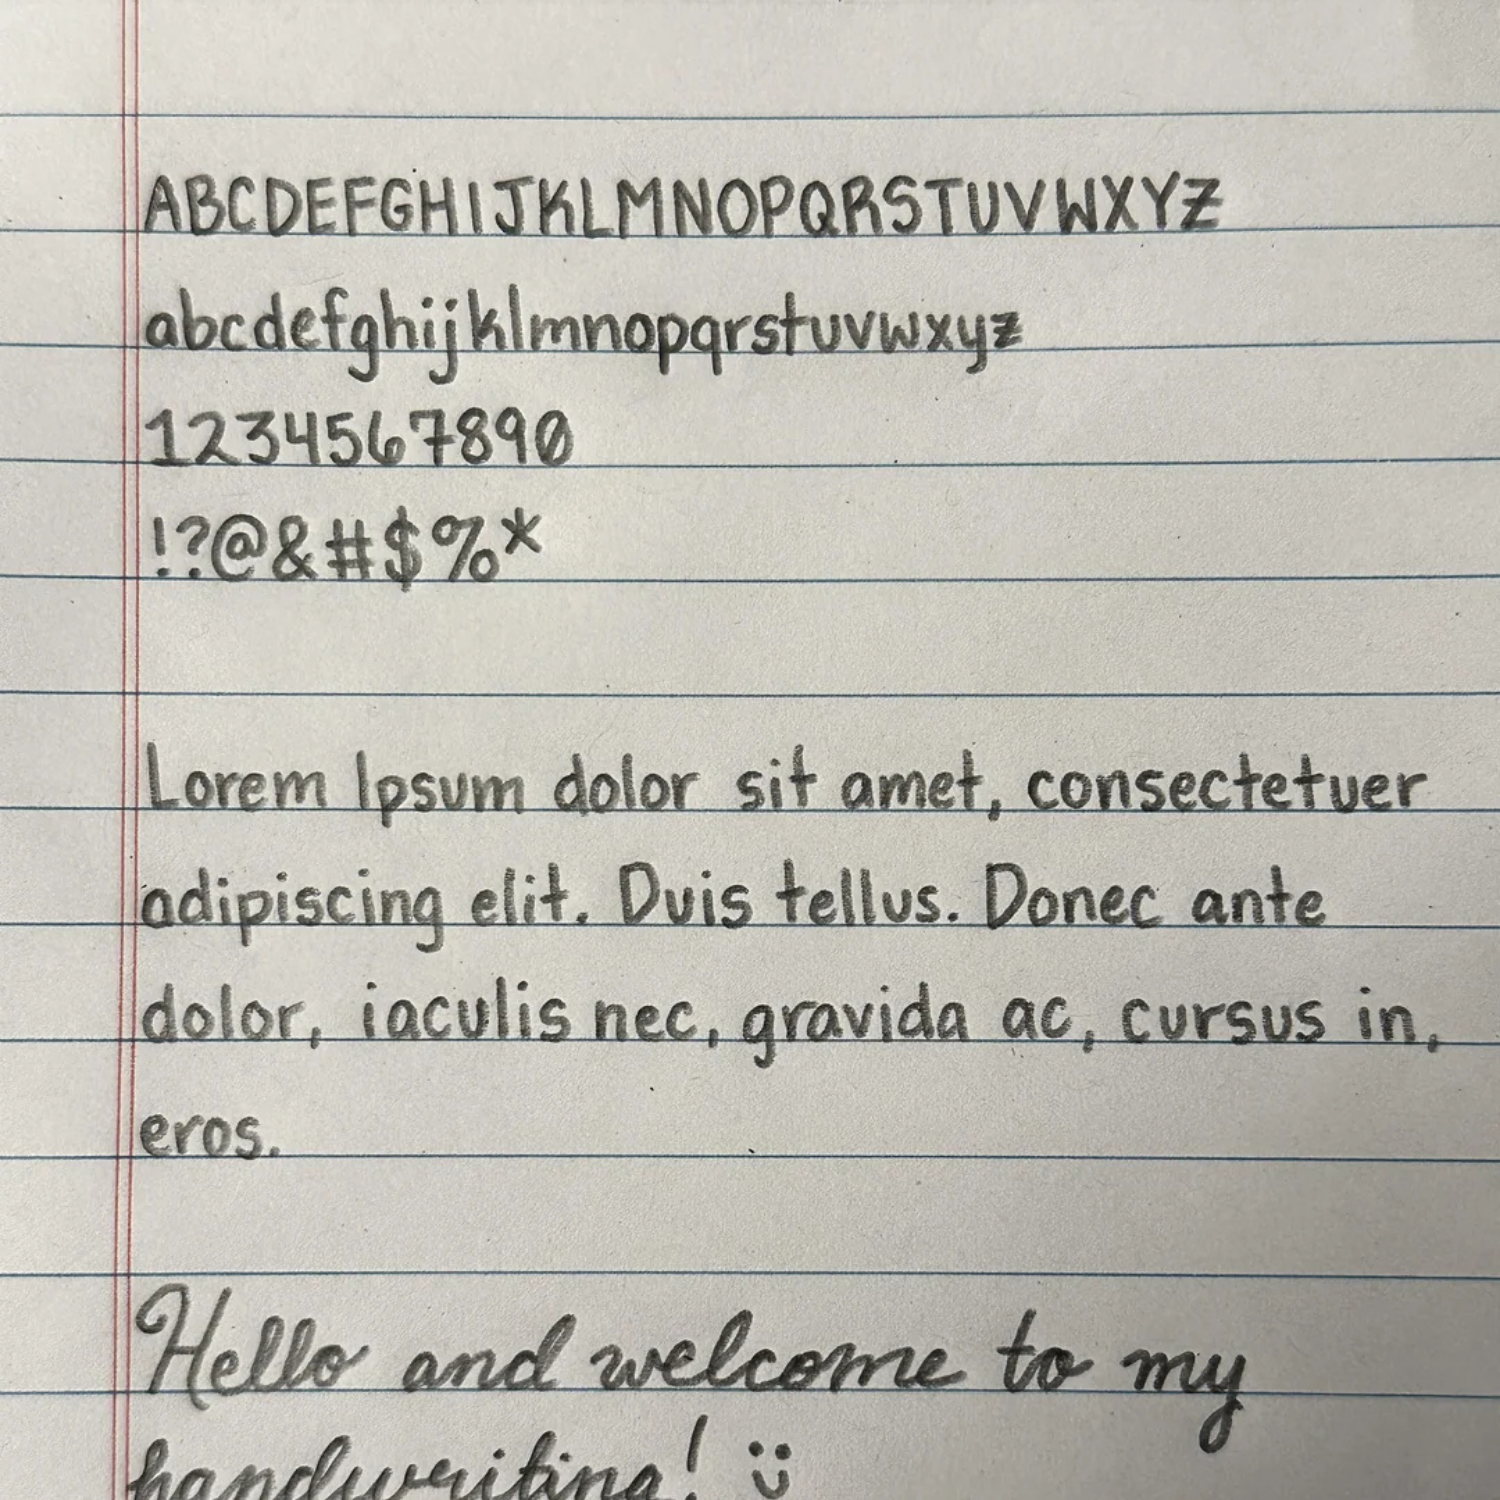 ABCDEFGHIJKLMNOPQRSTUVWXYZ
abcdefghijklmnopqrstuvwxyz
1234567890
!?@&#$%*
Lorem Ipsum dolor sit amet, consectetuer
adipiscing elit. Duis tellus. Donec ante
dolor, iaculis nec, gravida ac, cursus in,
eros.
Hello and welcome to my
handwriting! ü